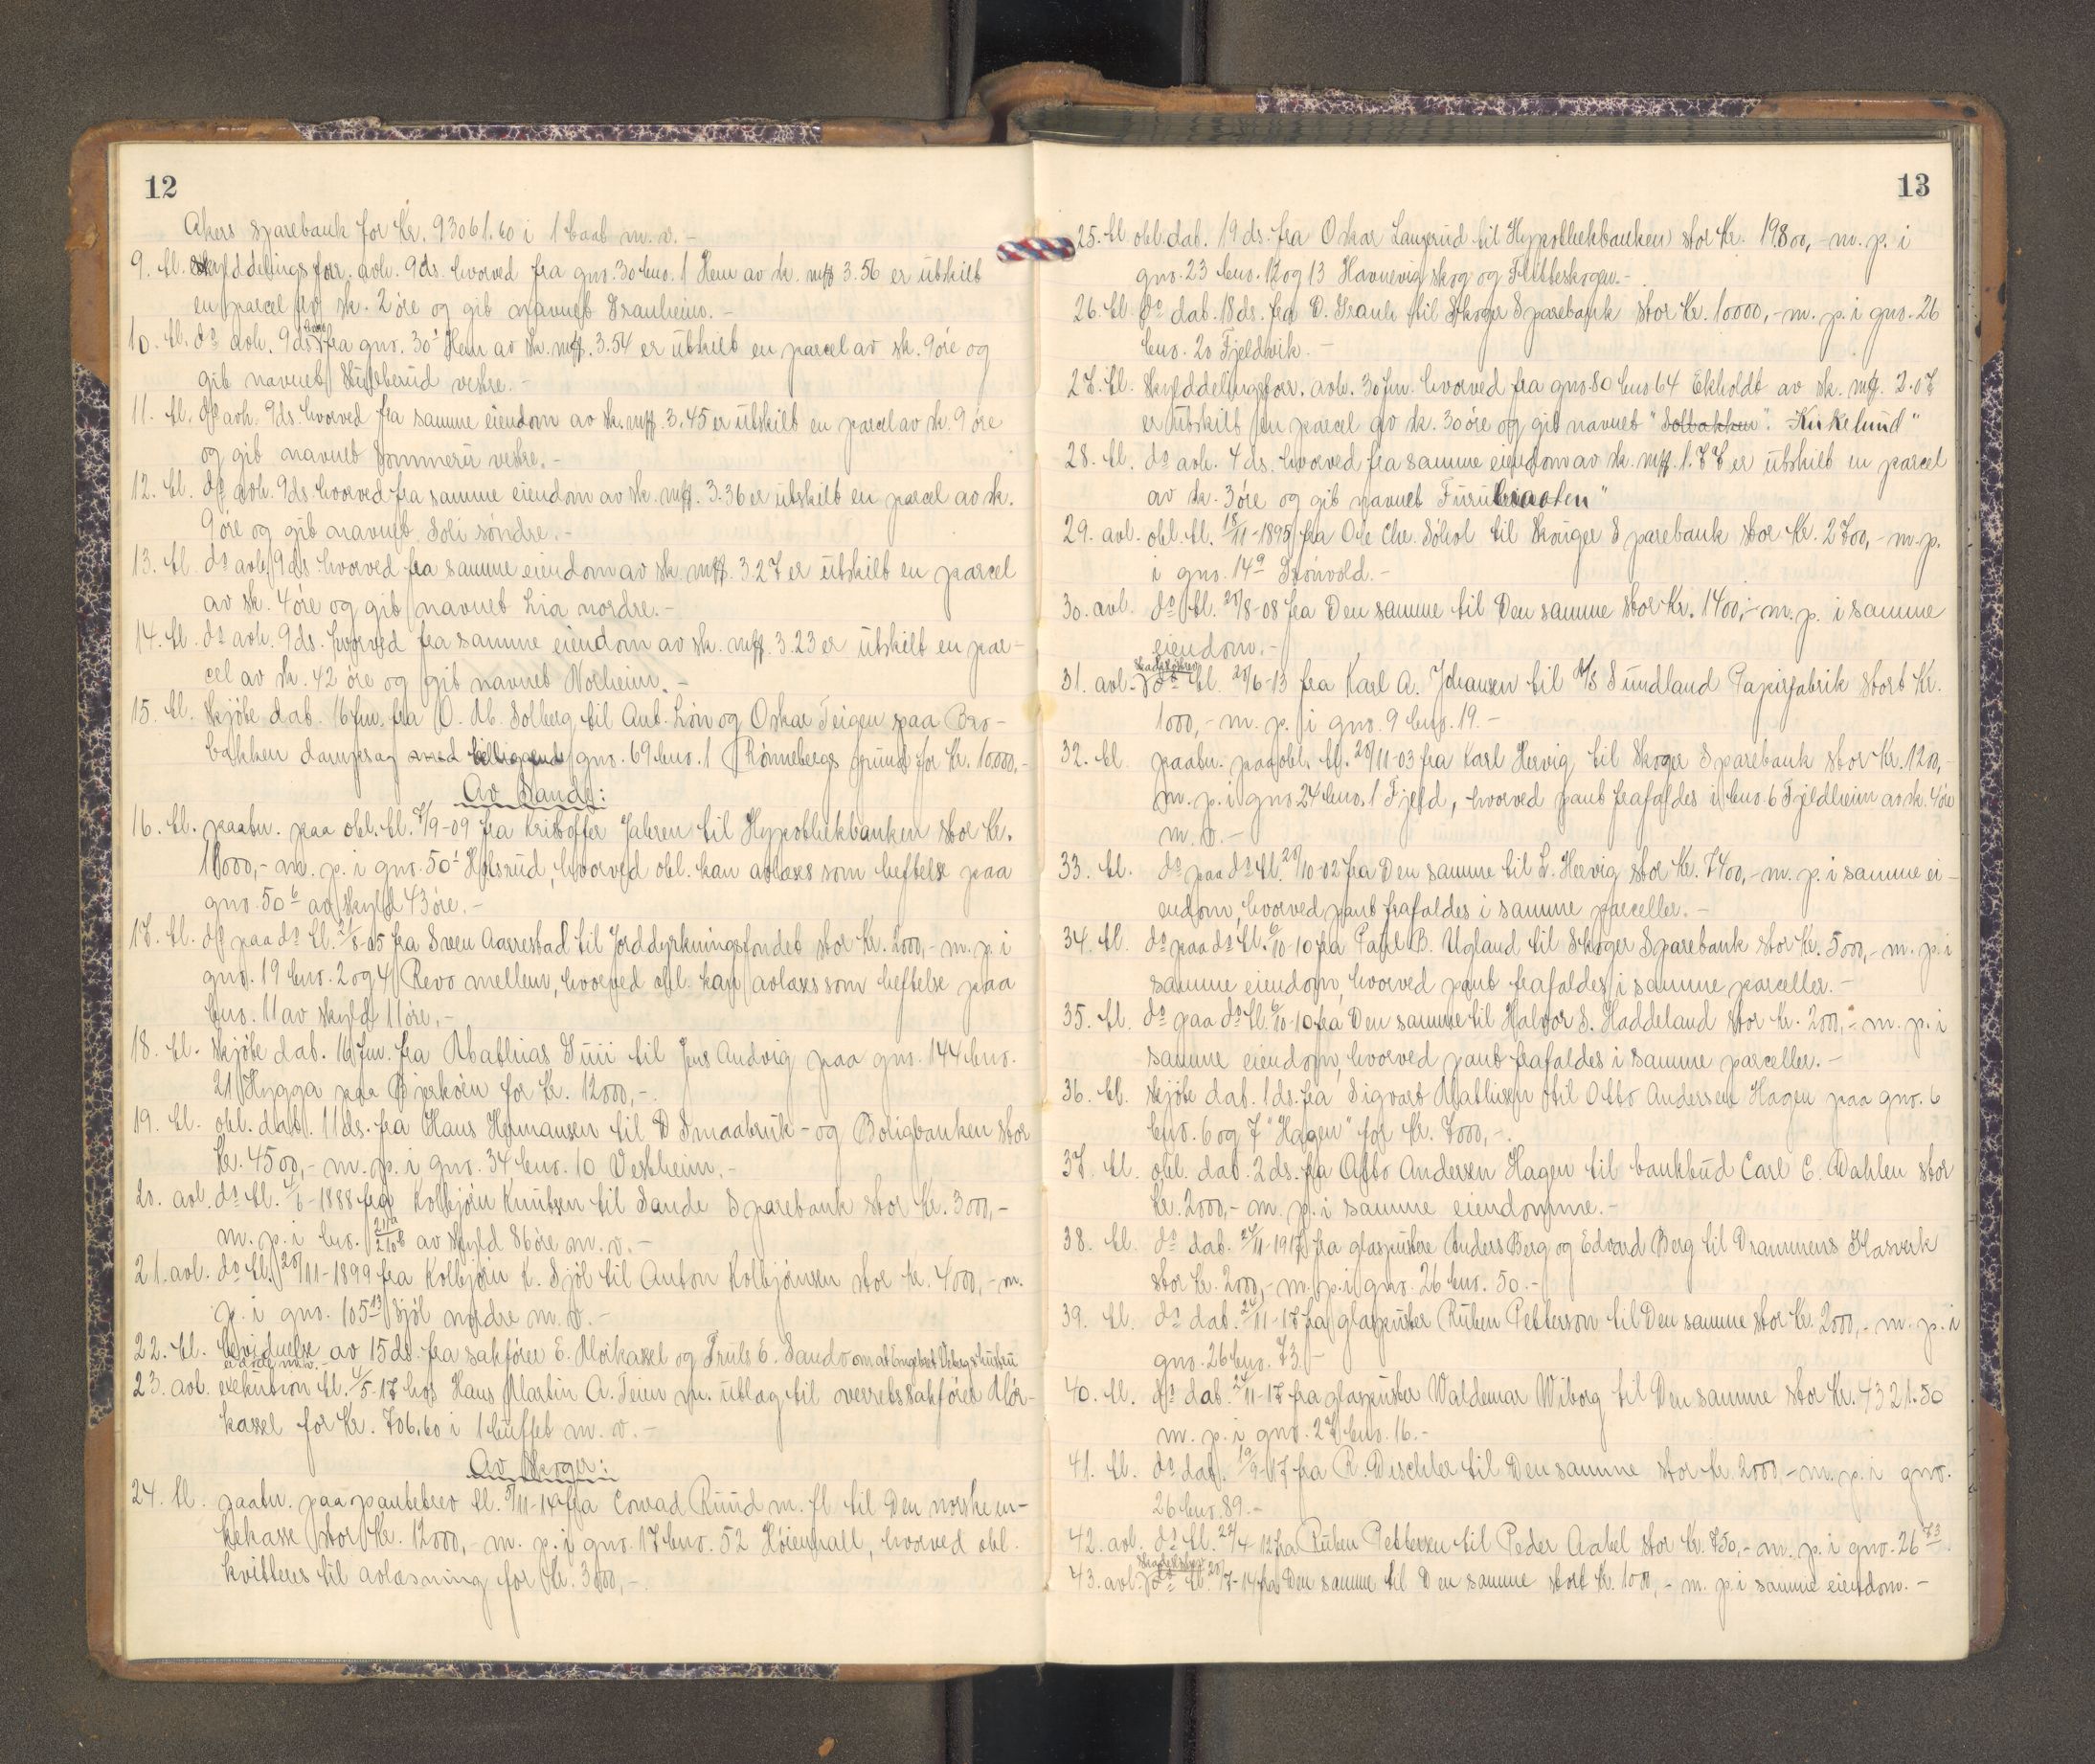 12
Akers sparebank for Kr. 93061.60 i 1 baat m. v. -
9. tl. skylddelingsforr. avh. 9 ds. hvorved fra gno. 30 bno. 1 Hem av sk. mk 3.56 er utskilt
en parcel av sk. 2 øre og git navnet Granheim. -
10. tl. do avh. 9 ds. fra gno. 30¹ Hem av sk. mk. 3.54 er utskilt en parcel av sk. 9 øre og
git navnet vestre. -
11. tl. do avh. 9 ds. hvorved fra samme eiendom av sk. mk. 3.45 er utskilt en parcel av sk. 9 øre
og git navnet Sommerü vestre. -
12. tl. do avh. 9 ds. hvorved fra samme eiendom av sk. mk. 3.36 er utskilt en parcel av sk.
9 øre og git navnet Soli søndre. -
13. tl. do avh. 9 ds. hvorved fra samme eiendom av sk. mk. 3.27 er utskilt en parcel
av sk. 4 øre og git navnet Lia nordre. -
14. tl. do avh. 9 ds. hvorved fra samme eiendom av sk. mk. 3.23 er utskilt en par-
cel av sk. 42 øre og git navnet Nolheim. -
15. tl. skjøte dat. 16 fm. fra O. M. Solberg til Ant. Løn og Oskar Teigen paa Bro-
bakken dampsag med gno. 69 bno. 1 Rønnebergs grund for Kr. 10.000,-
Av Sande:
16. tl. paatn. paa obl. tl. 7/9-09 fra Kristoffer Jahren til Hypothekbanken stor Kr.
11000,- m. p. i gno. 50¹ Holsrud, hvorved obl. kan avlæses som heftelse paa
gno. 50⁶ av skyld 43 øre. -
17. tl. do paa do tl. 21/8-05 fra Sven Aarrestad til Jorddyrkningsfondet stor Kr. 2000,- m. p. i
gno. 19 bno. 2 og 4 Revo mellem, hvorved obl. kan avlæses som heftelse paa
bno. 11 av skyld 11 øre. -
18. tl. skjøte dat. 16 fm. fra Mathias til Jens Andvig paa gno. 144 bno.
21 Hygga paa Bjerkøen for Kr. 12000,-.
19. tl. obl. dat. 11 ds. fra Hans Hermansen til D Smaabruk- og Boligbanken stor
Kr. 4500,- m. p. i gno. 34 bno. 10 Vestheim. -
20. avl. do tl. 4/6-1888 fra Kolbjørn Knutsen til Sande Sparebank stor Kr. 3000,-
m. p. i bno. av skyld 86 øre m. v. -
21. avl. do tl. 20/11-1899 fra Kolbjørn K. Sjøl til Anton Kolbjørnsen stor Kr. 4000,- m.
p. i gno. 105¹³ Sjøl nordre m. v. -
22. tl. bevidnelse av 15 ds. fra sakfører E. Mørkassel og Truls 6. Sando om at Engebret hustru
er døde m. v. -
23. avl. exekution tl. 4/5-17 hos Hans Martin A. Teien m. utlæg til overretssakfører Mør-
kassel for Kr. 706,60 i 1 buffet m. v. -
Av Skoger:
24. tl. paatn. paa pantebrev tl. 5/11-14 fra Conrad Ruud m. fl. til Den norske en-
kekasse stor Kr. 12000,- m. p. i gno. 17 bno. 52 Høienhall, hvorved obl.
kvitteres til avlæsning for Kr. 3000,-.
13
25. tl. obl. dat. 19 ds. fra Oskar Langerud til Hypothekbanken stor Kr. 19800,- m. p. i
gno. 23 bno. 12 og 13 Havnevig skog og Flitteskogen. -
26. tl. do dat. 18 ds. fra O. Granli til Skoger Sparebank stor Kr. 10000,- m. p. i gno. 26
bno. 20 Fjeldvik. -
27. tl. Skylddelingsforr. avh. 30 fm. hvorved fra gno 80 bno 64 Ekholdt av sk. mk. 2.07
er utskilt en parcel av sk. 30 øre og git navnet "Solbakken". "Kirkelund"
28. tl. do avh. 4 ds. hvorved fra samme eiendom av sk. mk. 1.77 er utskilt en parcel
av sk. 3 øre og git navnet Furu"
29. avl. obl. tl. 18/11-1895 fra Ole Chr. Solhol til Skouger Sparebank stor Kr. 2700,- m. p.
i gno. 14⁹ Grønvold. -
30. avl. do tl. 28/8-08 fra Den samme til Den samme stor Kr. 1400,- m. p. i samme
eiendom. -
skadesløsbr.
31. avl. do tl. 28/6-13 fra Karl A. Johansen til A/S Sundland Papirfabrik stort Kr.
1000,- m. p. i gno. 9 bno. 19. -
32. tl. paatn. paa obl. tl. 28/11-03 fra Karl Hervig til Skoger Sparebank stor Kr. 1200,-
m. p. i gno 24 bno. 1 Fjeld, hvorved pant frafaldes i bno 6 Fjeldheim av sk. 4 øre
m. v. -
33. tl. do paa do tl. 28/10-02 fra Den samme til L. Hervig stor Kr. 7400,- m. p. i samme ei-
endom, hvorved pant frafaldes i samme parceller. -
34. tl. do paa do tl. 6/10-10 fra Paul B. Ugland til Skoger Sparebank stor Kr. 5000,- m. p. i
samme eiendom, hvorved pant frafaldes i samme parceller. -
35. tl. do paa do tl. 6/10-10 fra Den samme til Halvor S. Haddeland stor Kr. 2000,- m. p. i
samme eiendom, hvorved pant frafaldes i samme parceller. -
36. tl. skjøte dat. 1 ds. fra Sigvart Mathisen til Otto Andersen Hagen paa gno. 6
bno. 6 og 7 "Hagen" for Kr. 7000,-.
37. tl. obl. dat. 2 ds. fra Otto Andersen Hagen til bankbud Carl E. Dahlen stor
Kr. 2000,- m. p. i samme eiendomme. -
38. tl. do dat. 24/11-1917 fra glaspuster Anders Berg og Edvard Berg til Drammens Glasverk
stor Kr. 2000,- m. p. i gno. 26 bno. 50. -
39. tl. do dat. 24/11-17 fra glaspuster Ruben Petterson til Den samme stor Kr. 2000,- m. p. i
gno. 26 bno. 73. -
40. tl. do dat. 24/11-17 fra glaspuster Waldemar Wiborg til Den samme stor Kr. 4321.50
m. p. i gno. 27 bno. 16. -
41. tl. do dat. 19/9-17 fra R. Dischler til Den samme stor Kr. 2000,- m. p. i gno.
26 bno. 89. -
42. avl. do tl. 22/4-12 fra Ruben Pettersen til Peder Aabel stor Kr. 750,- m. p. i gno. 26⁷³.
skadesløsbr.
43. avl. do tl. 20/7-14 fra Den samme til Den samme stort Kr. 1000,- m. p. i samme eiendom. -